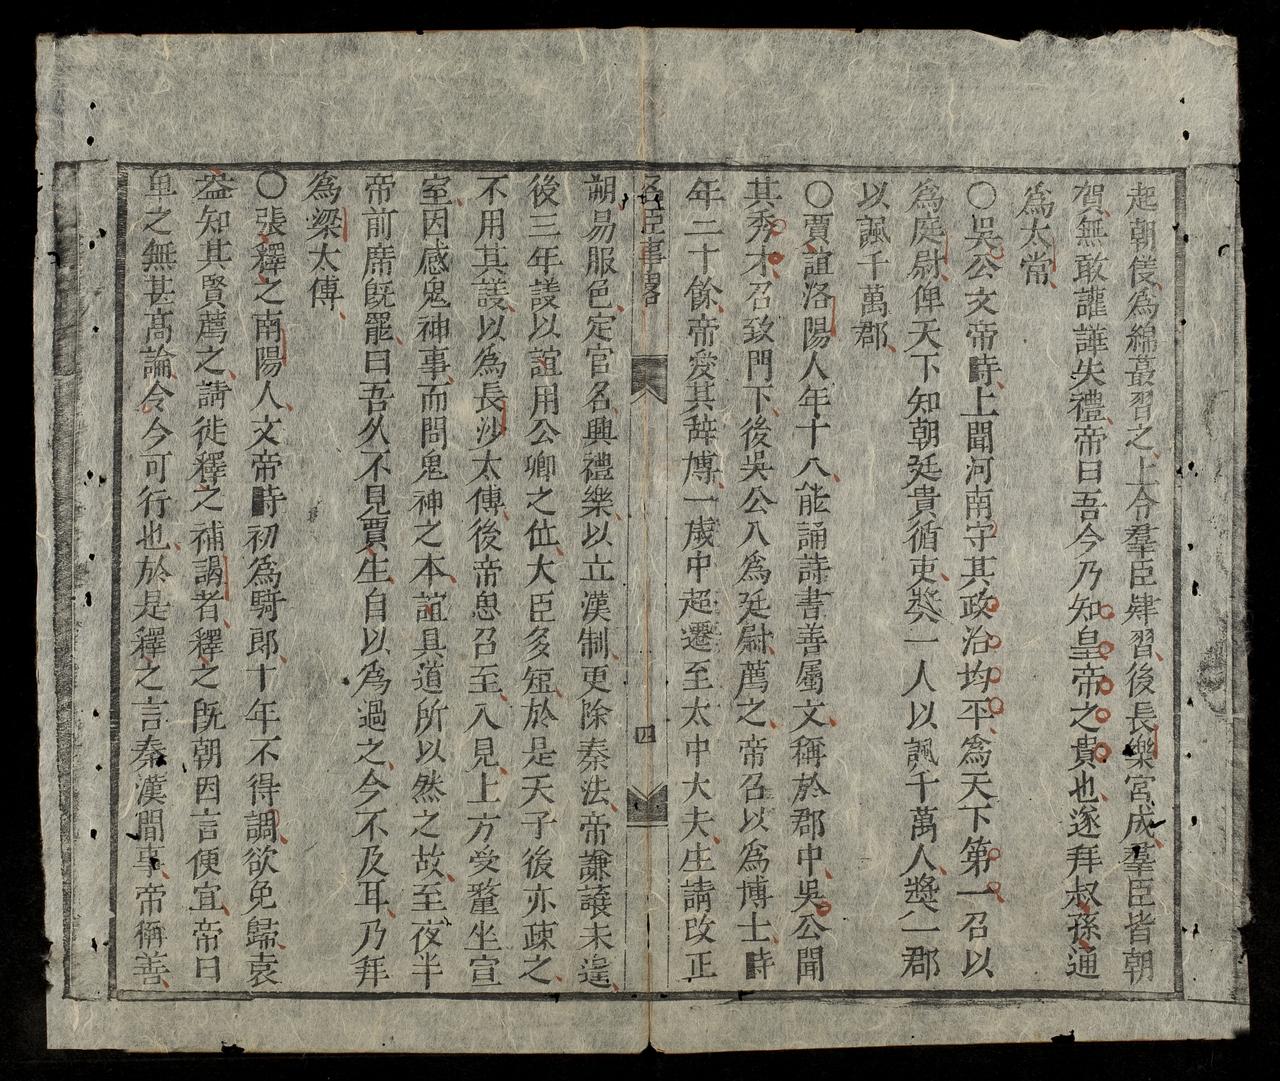 起朝儀為綿蕞習之上令羣臣肄習後長樂宮成羣臣皆朝
賀無敢讙譁失禮帝曰吾今乃知皇帝之貴也遂拜叔孫通
為太常
〇吳公文帝時上聞河南守其政治均平為天下第一召以
為庭尉俾天下知朝廷貴循吏奬一人以諷千萬人奬一郡
以諷千萬郡
〇賈誼洛陽人年十八能誦詩書善屬文稱於郡中吳公聞
其秀才召致門下後吳公入為廷尉薦之帝召以為博士時
年二十餘帝愛其辞博一歲中超遷至太中大夫生請改正
名臣事畧
四
朔易服色定官名興禮樂以立漢制更除秦法帝謙讓未遑
後三年議以誼用公卿之位大臣多短於是天子後亦疎之
不用其議以為長沙太傅後帝思召至入見上方受釐坐宣
室因感鬼神事而問鬼神之本誼具道所以然之故至夜半
帝前席旣罷曰吾久不見賈生自以為過之今不及耳乃拜
為梁太傅
〇張釋之南陽人文帝時初為騎郎十年不得調欲免歸袁
盎知其賢薦之請徙釋之補謁者釋之旣朝因言便宜帝曰
卑之無甚高論令今可行也於是釋之言秦漢間事帝稱善